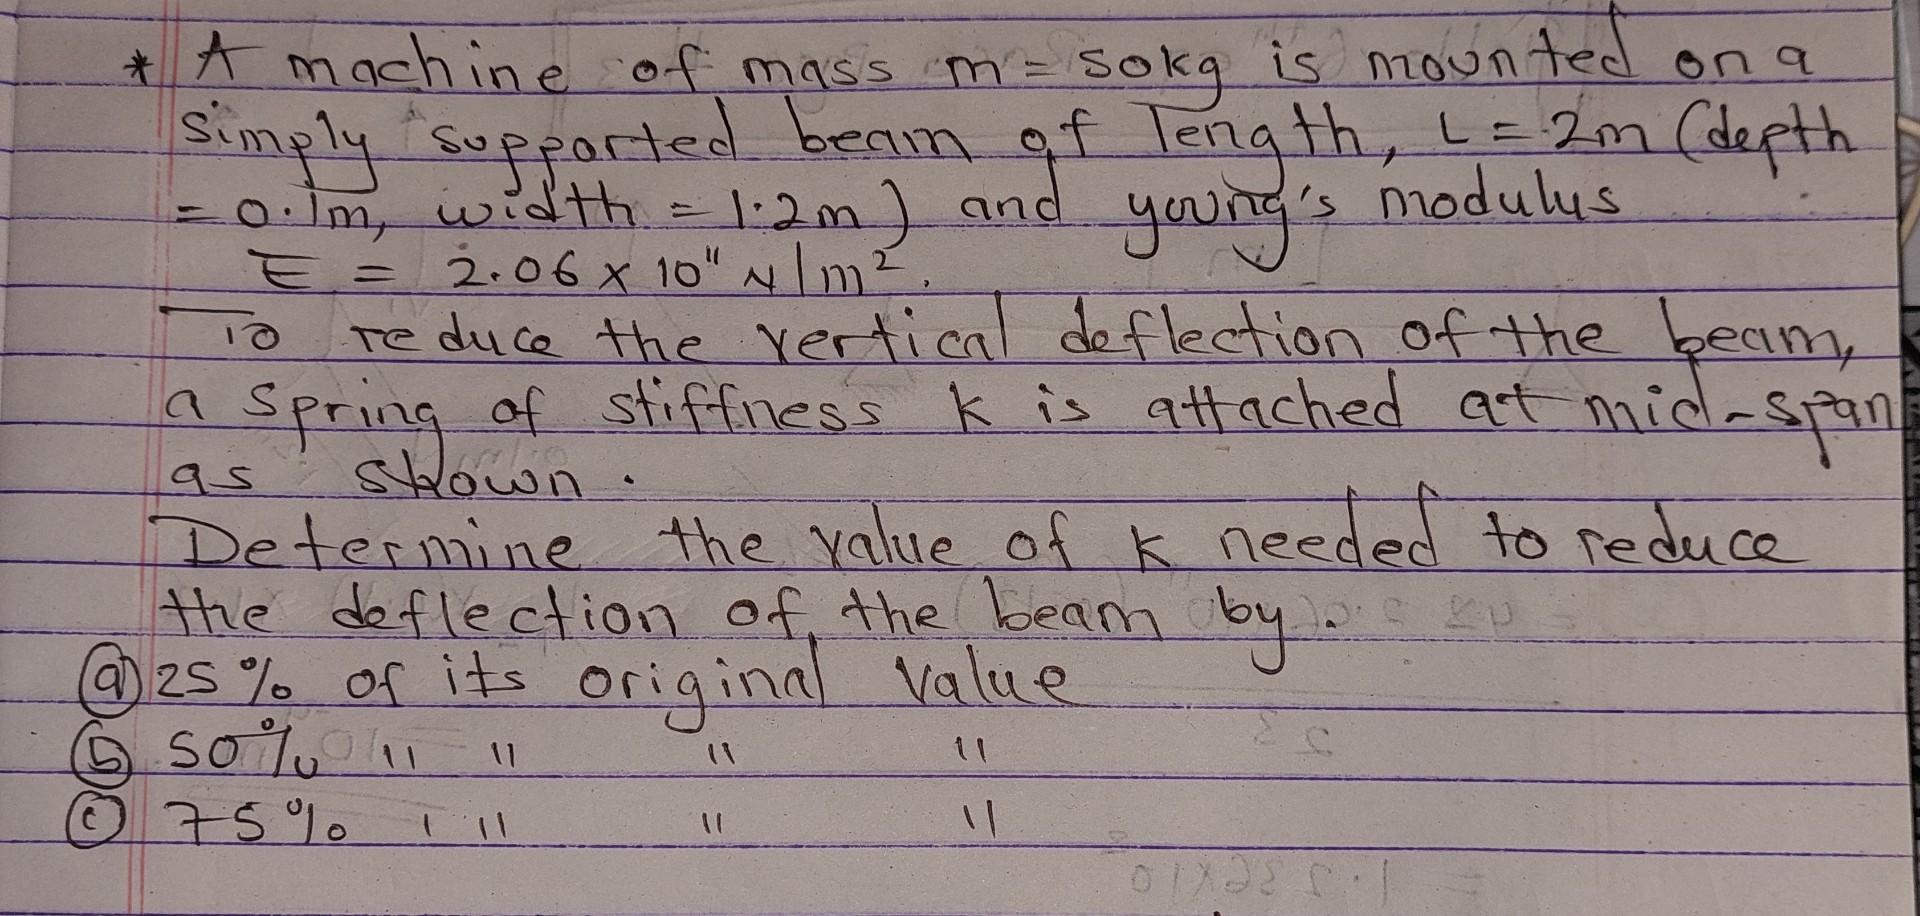 * A machine of mass m = 50kg is mounted on a
simply supported beam of length, L = 2m (depth
= 0.1m, width = 1.2m) and young's modulus
E = 2.06 x 10¹¹ N/m².
To reduce the vertical deflection of the beam,
a spring of stiffness k is attached at mid-span
as shown.
Determine the value of k needed to reduce
the deflection of the beam by.
(a) 25% of its original value
(b) 50% " " " "
(c) 75% " " " "